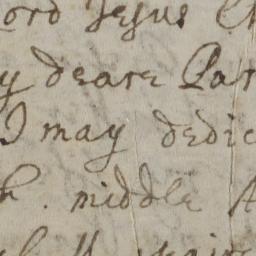 Lord Jesus Ch
y deare Par
I may dedic
h. middle A